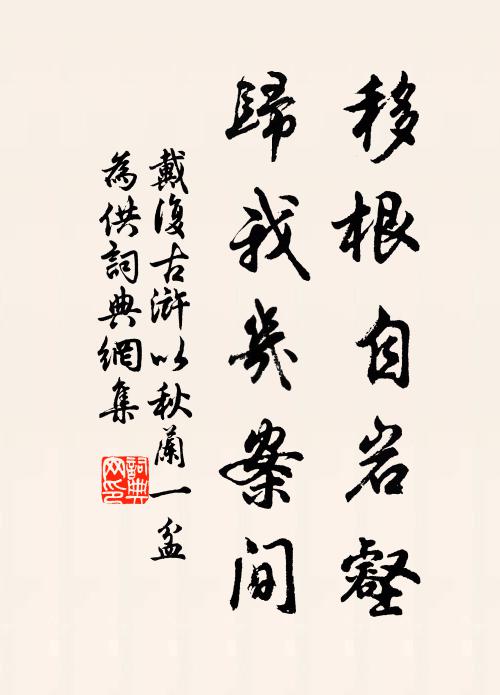 移根自岩壑
歸我几案間
戴復古滸以秋蘭一盆
為供詞典網集
詞典
网印